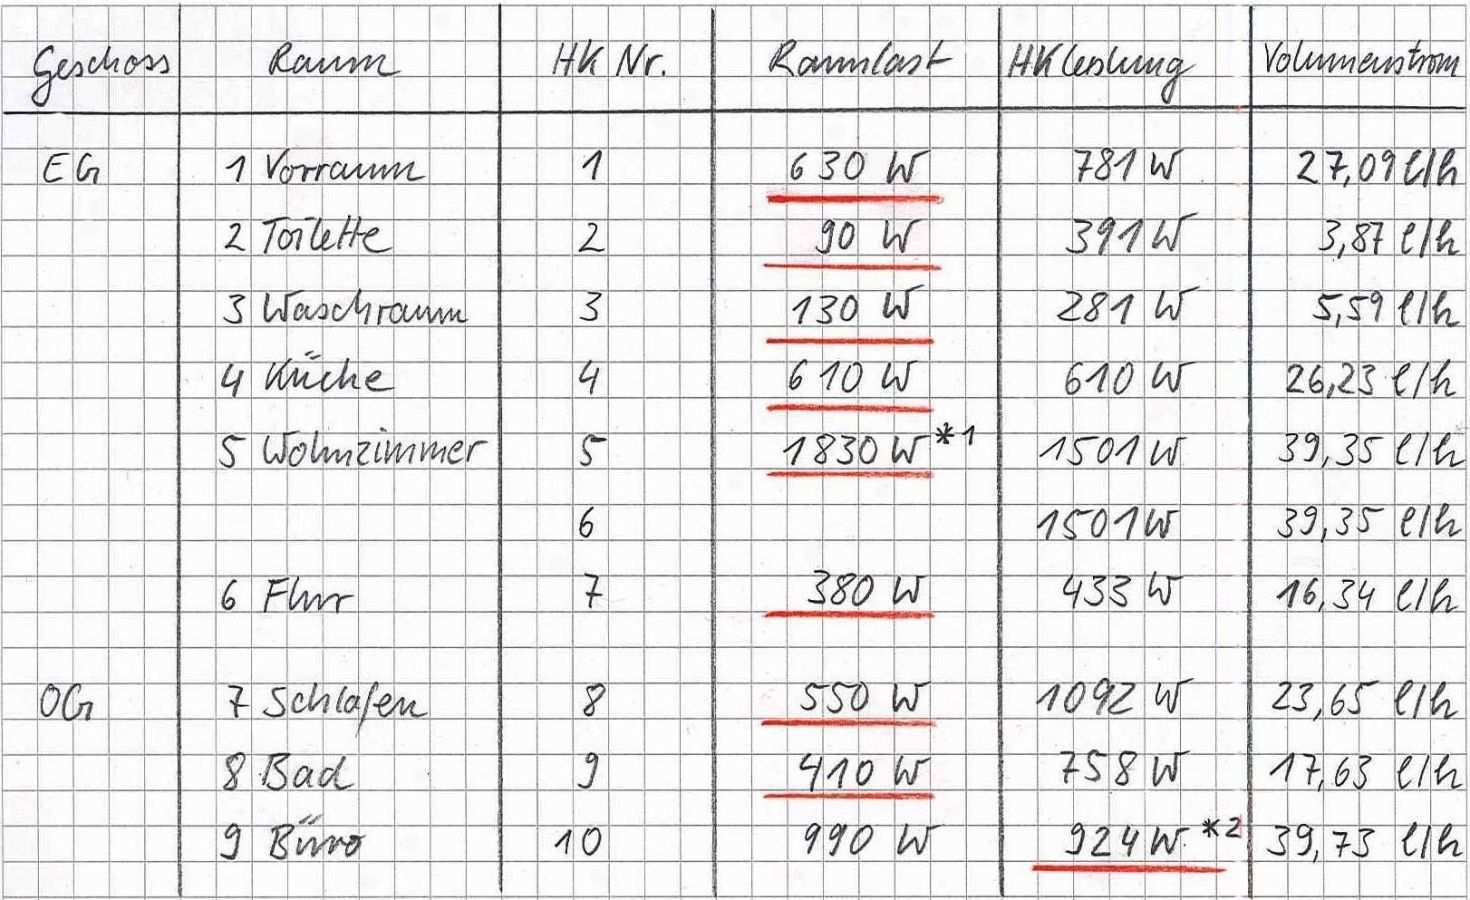 Geschoss Raum HK Nr. Raumlast HKleistung Volumenstrom
EG 1 Vorraum 1 630 W 781 W 27,09 l/h
2 Toilette 2 90 W 391 W 3,87 l/h
3 Waschraum 3 130 W 281 W 5,59 l/h
4 Küche 4 610 W 610 W 26,23 l/h
5 Wohnzimmer 5 1830 W *1 1501 W 39,35 l/h
6 1501 W 39,35 l/h
6 Flur 7 380 W 433 W 16,34 l/h
OG 7 Schlafen 8 550 W 1092 W 23,65 l/h
8 Bad 9 410 W 758 W 17,63 l/h
9 Büro 10 990 W 924 W *2 39,73 l/h